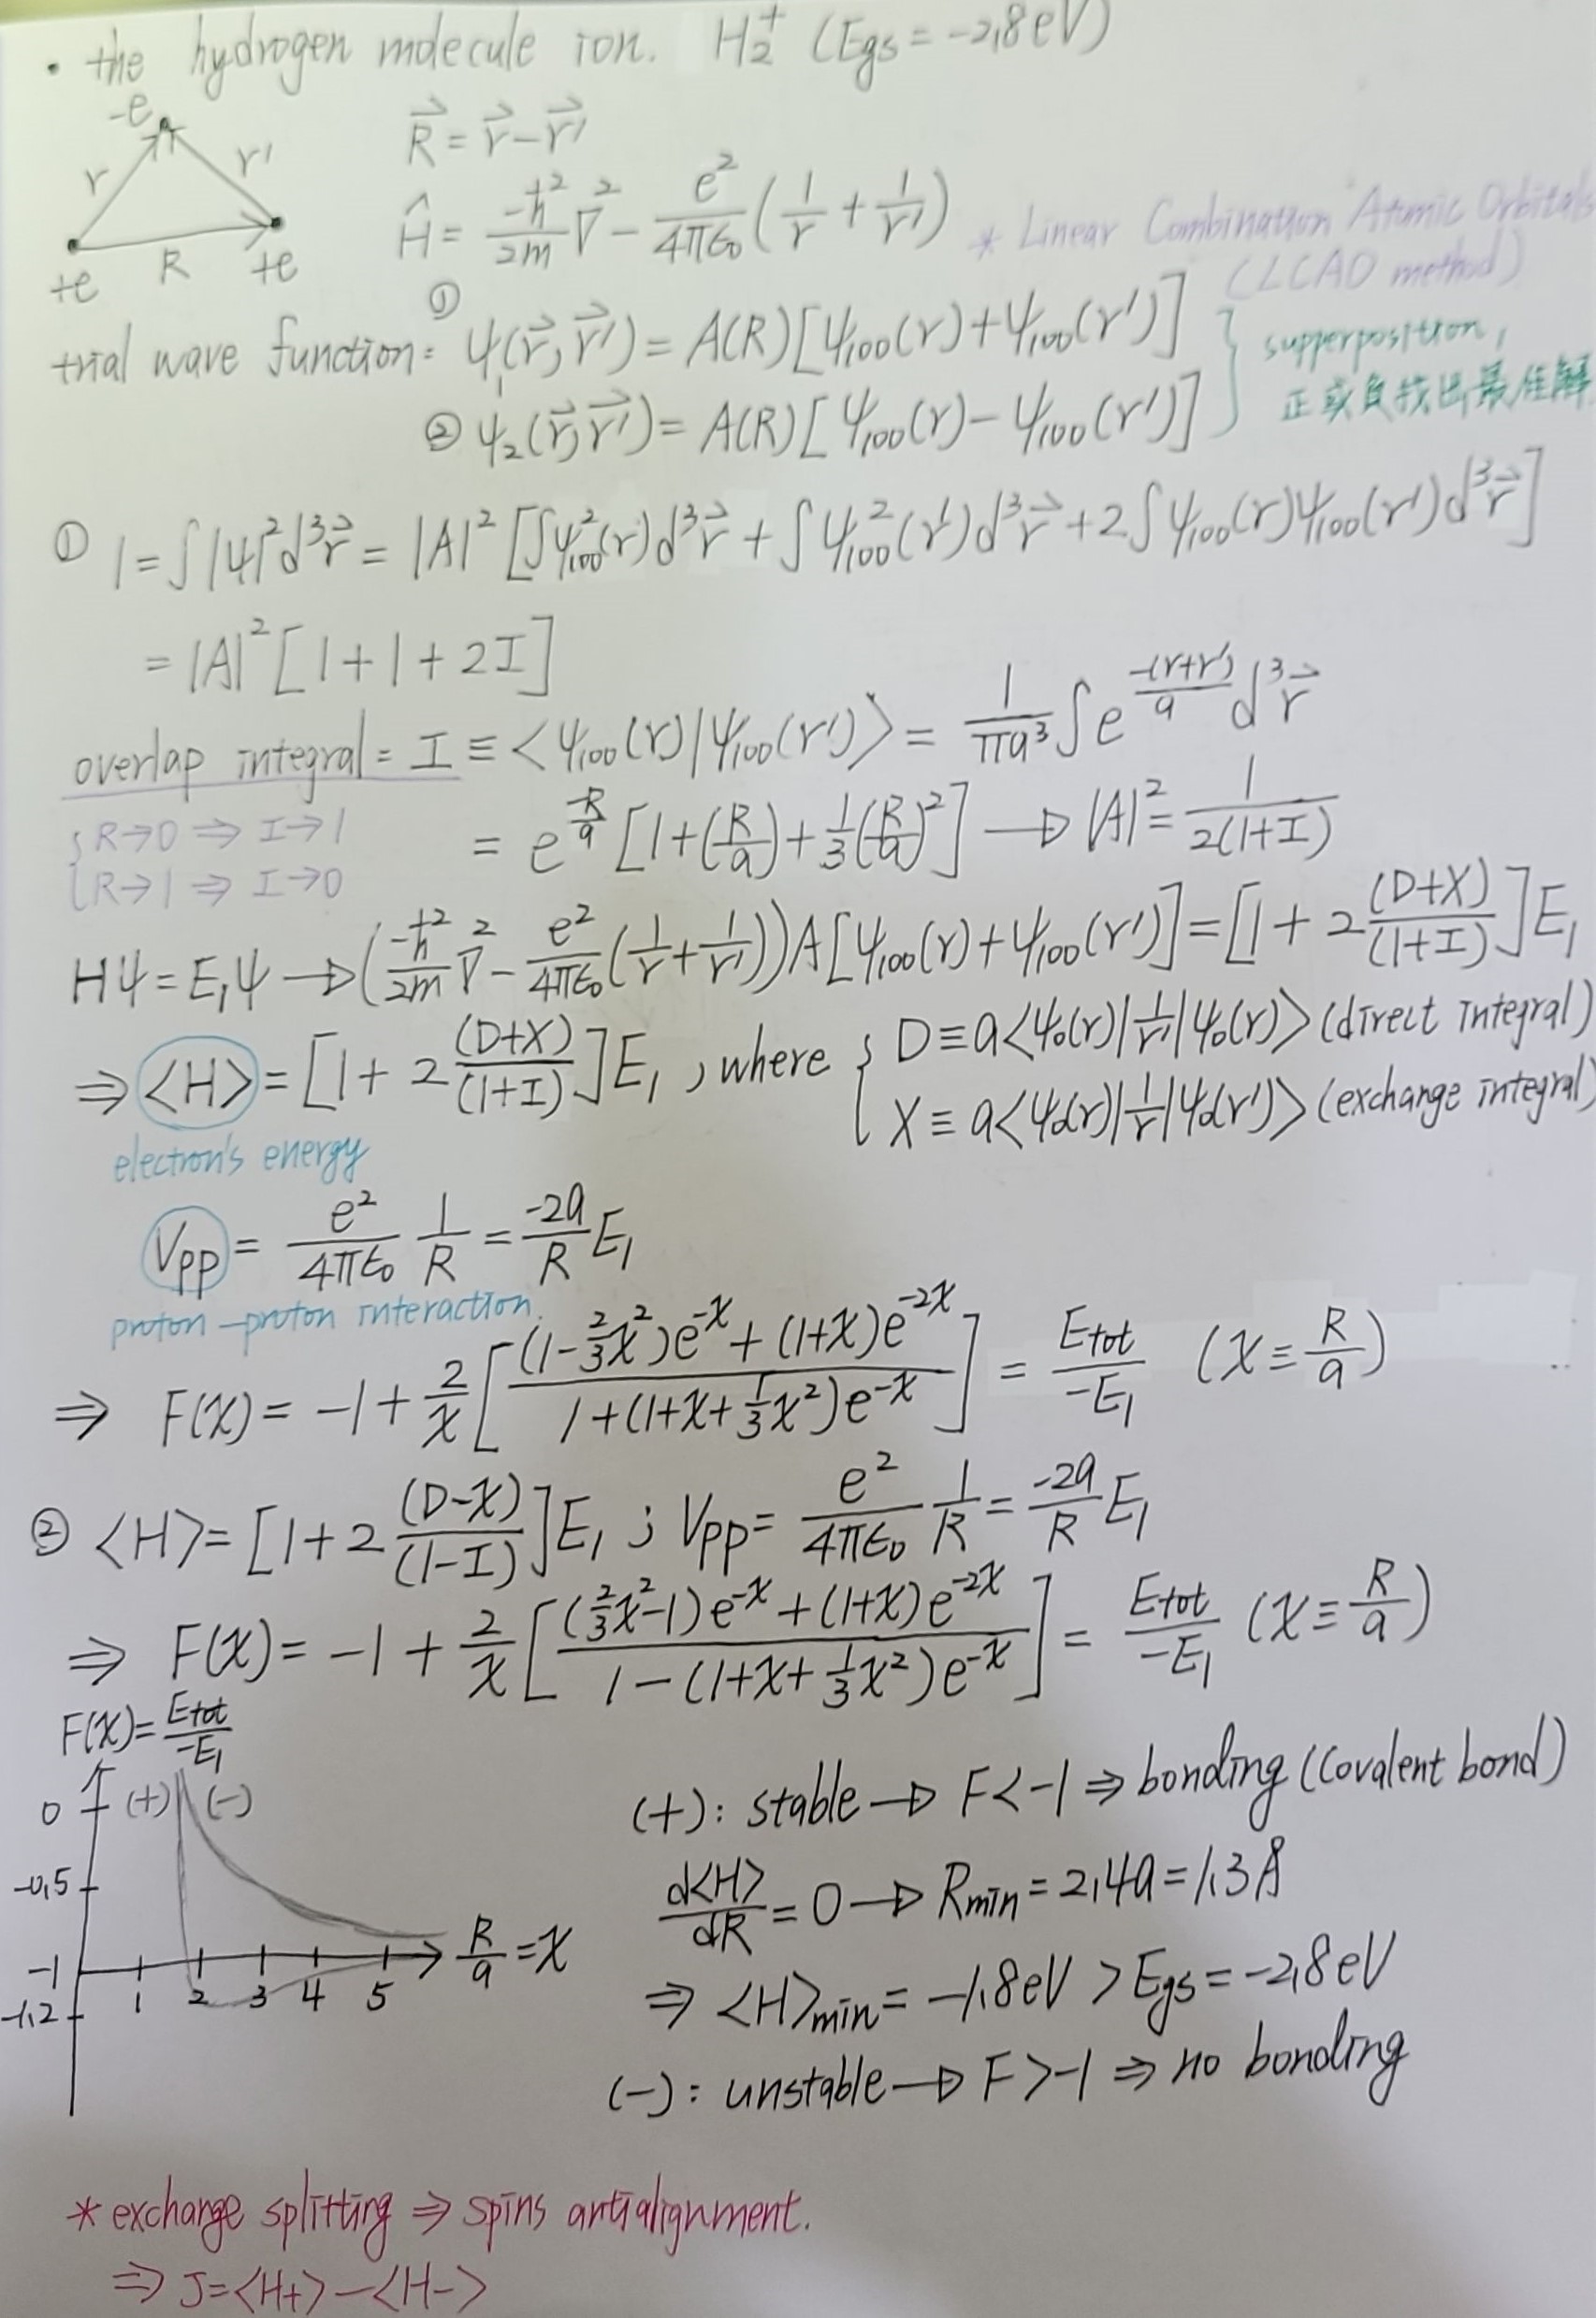 • the hydrogen molecule ion. H₂⁺ (Egs = -2.8eV)
-e
r r'
+e R +e
R⃗ = r⃗ - r⃗'
Ĥ = -ħ²/2m ∇² - e²/4πε₀ (1/r + 1/r')
* Linear Combination Atomic Orbitals
(LCAO method)
trial wave function: ① ψ₁(r⃗, r⃗') = A(R)[ψ₁₀₀(r) + ψ₁₀₀(r')]
② ψ₂(r⃗, r⃗') = A(R)[ψ₁₀₀(r) - ψ₁₀₀(r')]
supperposition,
正或負找出最佳解
① 1 = ∫|ψ|²d³r⃗ = |A|² [∫ψ₁₀₀²(r)d³r⃗ + ∫ψ₁₀₀²(r')d³r⃗ + 2∫ψ₁₀₀(r)ψ₁₀₀(r')d³r⃗]
= |A|² [1 + 1 + 2I]
overlap integral = I ≡ <ψ₁₀₀(r)|ψ₁₀₀(r')> = 1/πa³ ∫e^(-(r+r')/a) d³r⃗
{ R→0 ⇒ I→1
{ R→1 ⇒ I→0
= e^(-R/a) [1 + (R/a) + 1/3 (R/a)²] → |A|² = 1/2(1+I)
Hψ = E₁ψ → (-ħ²/2m ∇² - e²/4πε₀ (1/r + 1/r')) A[ψ₁₀₀(r) + ψ₁₀₀(r')] = [1 + 2 (D+X)/(1+I)] E₁
⇒ <H> = [1 + 2 (D+X)/(1+I)] E₁, where { D ≡ a<ψ₀(r)|1/r'|ψ₀(r)> (direct integral)
{ X ≡ a<ψ₀(r)|1/r|ψ₀(r')> (exchange integral)
electron's energy
Vpp = e²/4πε₀ 1/R = -2a/R E₁
proton-proton interaction.
⇒ F(x) = -1 + 2/x [((1 - 2/3 x²)e^(-x) + (1+x)e^(-2x)) / (1 + (1 + x + 1/3 x²)e^(-x))] = Etot/-E₁ (x ≡ R/a)
② <H> = [1 + 2 (D-X)/(1-I)] E₁ ; Vpp = e²/4πε₀ 1/R = -2a/R E₁
⇒ F(x) = -1 + 2/x [((2/3 x² - 1)e^(-x) + (1+x)e^(-2x)) / (1 - (1 + x + 1/3 x²)e^(-x))] = Etot/-E₁ (x ≡ R/a)
F(x) = Etot/-E₁
0 (+) (-)
-0.5
-1
-1.2
1 2 3 4 5
R/a = x
(+): stable → F < -1 ⇒ bonding (Covalent bond)
d<H>/dR = 0 → Rmin = 2.4a = 1.3Å
⇒ <H>min = -1.8eV > Egs = -2.8eV
(-): unstable → F > -1 ⇒ no bonding
* exchange splitting ⇒ spins antialignment.
⇒ J = <H+> - <H->